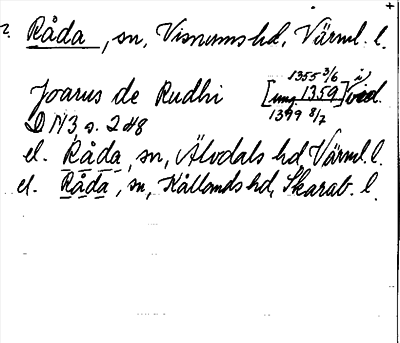 ? Råda, sn, Visnums hd, Värml. l.
1355 3/6
Joarus de Rudhi [omg. 1359] vid.
1399 8/7
DN 3, s. 248
el. Råda, sn, Älvdals hd Värml. l.
el. Råda, sn, Kållands hd, Skarab. l.